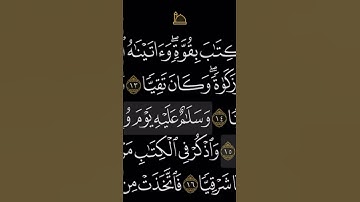 ٱلۡكِتَٰبَ بِقُوَّةٖۖ وَءَاتَيۡنَٰهُ
زَكَوٰةٗۖ وَكَانَ تَقِيّٗا ١٣
١٤ وَسَلَٰمٌ عَلَيۡهِ يَوۡمَ
١٥ وَٱذۡكُرۡ فِي ٱلۡكِتَٰبِ
شَرۡقِيّٗا ١٦ فَٱتَّخَذَتۡ مِن